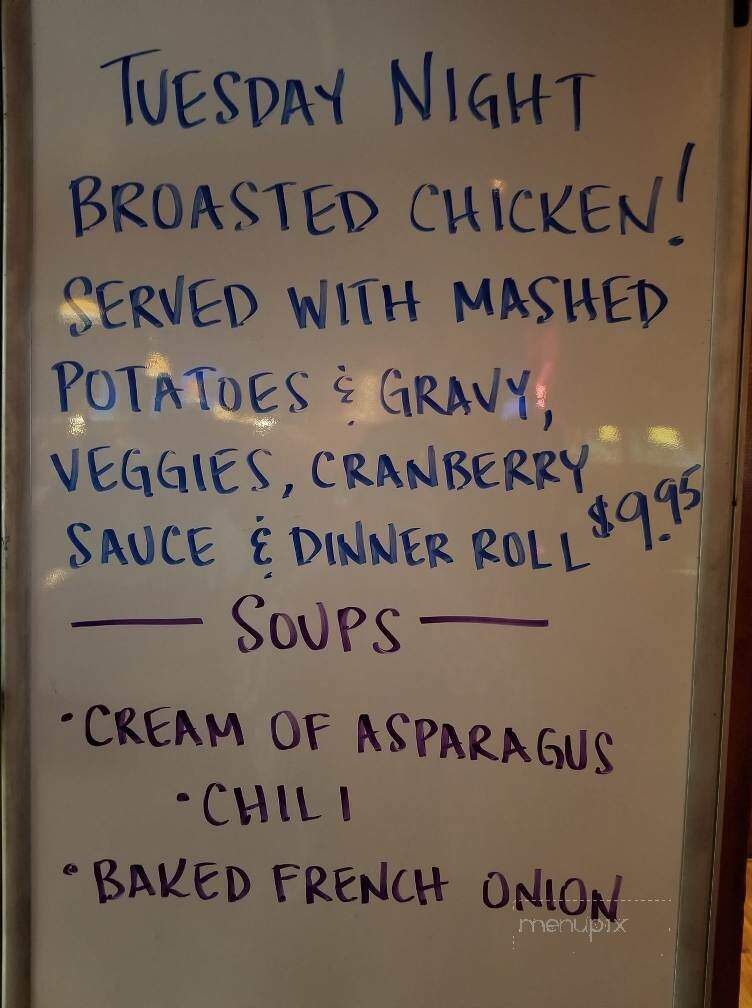 TUESDAY NIGHT
BROASTED CHICKEN!
SERVED WITH MASHED
POTATOES & GRAVY,
VEGGIES, CRANBERRY
SAUCE & DINNER ROLL $9.95
— SOUPS —
• CREAM OF ASPARAGUS
• CHILI
• BAKED FRENCH ONION
menupix